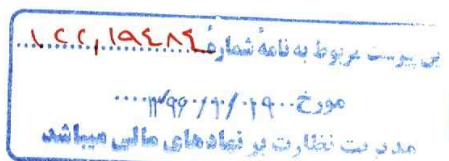 این پیوست مربوط به نامهٔ شمارهٔ ۱۲۲,۱۹۴۸۴
مورخ ۱۳۹۶/۰۶/۲۹
مدیریت نظارت بر نهادهای مالی میباشد